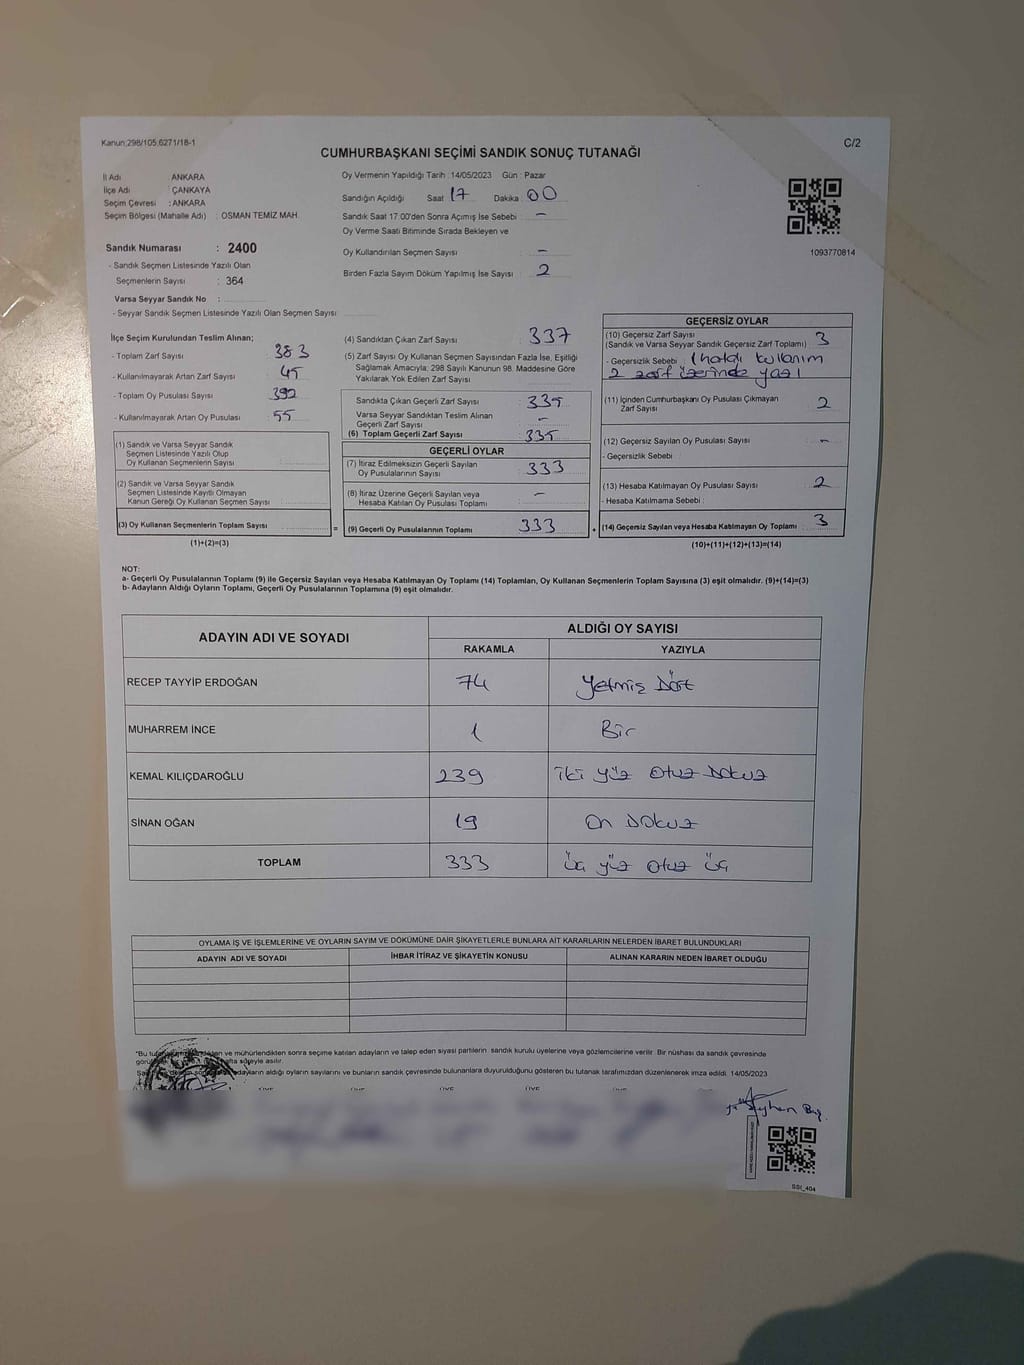 Kanun;298/105,6271/18-1
C/2
CUMHURBAŞKANI SEÇİMİ SANDIK SONUÇ TUTANAĞI
İl Adı : ANKARA
İlçe Adı : ÇANKAYA
Seçim Çevresi : ANKARA
Seçim Bölgesi (Mahalle Adı) : OSMAN TEMİZ MAH.
Sandık Numarası : 2400
- Sandık Seçmen Listesinde Yazılı Olan
Seçmenlerin Sayısı : 364
Varsa Seyyar Sandık No :
- Seyyar Sandık Seçmen Listesinde Yazılı Olan Seçmen Sayısı
Oy Vermenin Yapıldığı Tarih : 14/05/2023 Gün : Pazar
Sandığın Açıldığı Saat 17 Dakika : 00
Sandık Saat 17.00'den Sonra Açımış İse Sebebi : -
Oy Verme Saati Bitiminde Sırada Bekleyen ve
Oy Kullandırılan Seçmen Sayısı : -
Birden Fazla Sayım Döküm Yapılmış İse Sayısı : 2
1093770814
İlçe Seçim Kurulundan Teslim Alınan;
- Toplam Zarf Sayısı : 383
- Kullanılmayarak Artan Zarf Sayısı : 45
- Toplam Oy Pusulası Sayısı : 392
- Kullanılmayarak Artan Oy Pusulası : 55
(1) Sandık ve Varsa Seyyar Sandık
Seçmen Listesinde Yazılı Olup
Oy Kullanan Seçmenlerin Sayısı :
(2) Sandık ve Varsa Seyyar Sandık
Seçmen Listesinde Kayıtlı Olmayan
Kanun Gereği Oy Kullanan Seçmen Sayısı :
(3) Oy Kullanan Seçmenlerin Toplam Sayısı
(1)+(2)=(3)
=
(4) Sandıktan Çıkan Zarf Sayısı : 337
(5) Zarf Sayısı Oy Kullanan Seçmen Sayısından Fazla İse, Eşitliği
Sağlamak Amacıyla; 298 Sayılı Kanunun 98. Maddesine Göre
Yakılarak Yok Edilen Zarf Sayısı
Sandıkta Çıkan Geçerli Zarf Sayısı : 335
Varsa Seyyar Sandıktan Teslim Alınan
Geçerli Zarf Sayısı : -
(6) Toplam Geçerli Zarf Sayısı : 335
GEÇERLİ OYLAR
(7) İtiraz Edilmeksizin Geçerli Sayılan
Oy Pusulalarının Sayısı : 333
(8) İtiraz Üzerine Geçerli Sayılan veya
Hesaba Katılan Oy Pusulası Toplamı : -
(9) Geçerli Oy Pusulalarının Toplamı : 333
+
GEÇERSİZ OYLAR
(10) Geçersiz Zarf Sayısı
(Sandık ve Varsa Seyyar Sandık Geçersiz Zarf Toplamı) : 3
- Geçersizlik Sebebi : 1 hatalı kullanım
2 zarf üzerinde yazı
(11) İçinden Cumhurbaşkanı Oy Pusulası Çıkmayan
Zarf Sayısı : 2
(12) Geçersiz Sayılan Oy Pusulası Sayısı : -
- Geçersizlik Sebebi :
(13) Hesaba Katılmayan Oy Pusulası Sayısı : 2
- Hesaba Katılmama Sebebi :
(14) Geçersiz Sayılan veya Hesaba Katılmayan Oy Toplamı : 3
(10)+(11)+(12)+(13)=(14)
NOT:
a- Geçerli Oy Pusulalarının Toplamı (9) ile Geçersiz Sayılan veya Hesaba Katılmayan Oy Toplamı (14) Toplamları, Oy Kullanan Seçmenlerin Toplam Sayısına (3) eşit olmalıdır. (9)+(14)=(3)
b- Adayların Aldığı Oyların Toplamı, Geçerli Oy Pusulalarının Toplamına (9) eşit olmalıdır.
ADAYIN ADI VE SOYADI ALDIĞI OY SAYISI
RAKAMLA YAZIYLA
RECEP TAYYİP ERDOĞAN 74 Yetmiş Dört
MUHARREM İNCE 1 Bir
KEMAL KILIÇDAROĞLU 239 iki yüz otuz Dokuz
SİNAN OĞAN 19 on Dokuz
TOPLAM 333 üç yüz otuz üç
OYLAMA İŞ VE İŞLEMLERİNE VE OYLARIN SAYIM VE DÖKÜMÜNE DAİR ŞİKAYETLERLE BUNLARA AİT KARARLARIN NELERDEN İBARET BULUNDUKLARI
ADAYIN ADI VE SOYADI İHBAR İTİRAZ VE ŞİKAYETİN KONUSU ALINAN KARARIN NEDEN İBARET OLDUĞU
ve mühürlendikten sonra seçime katılan adayların ve talep eden siyasi partilerin sandık kurulu üyelerine veya gözlemcilerine verilir. Bir nüshası da sandık çevresinde
süreyle asılır.
adayların aldığı oyların sayılarını ve bunların sandık çevresinde bulunanlara duyurulduğunu gösteren bu tutanak tarafımızdan düzenlenerek imza edildi. 14/05/2023
SSI_404